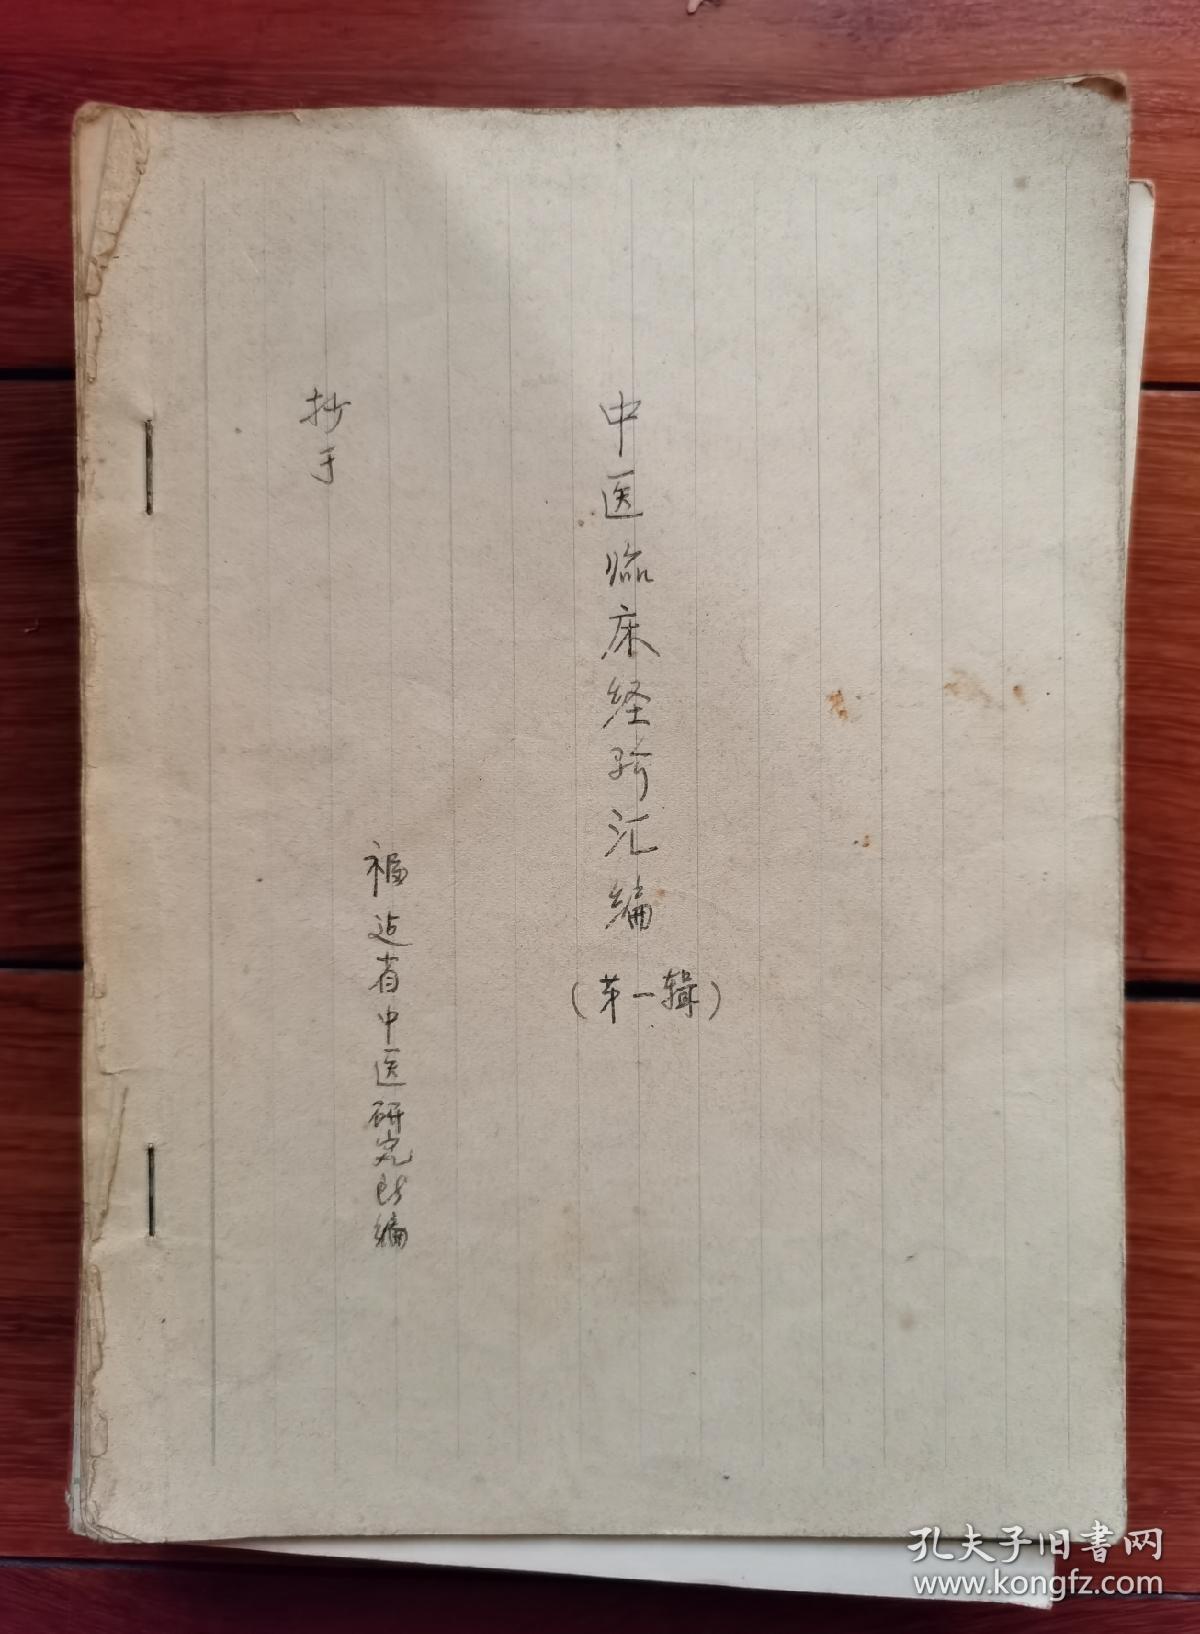 中医临床经验汇编
(第一辑)
福建省中医研究所编
抄于
孔夫子旧书网
www.kongfz.com